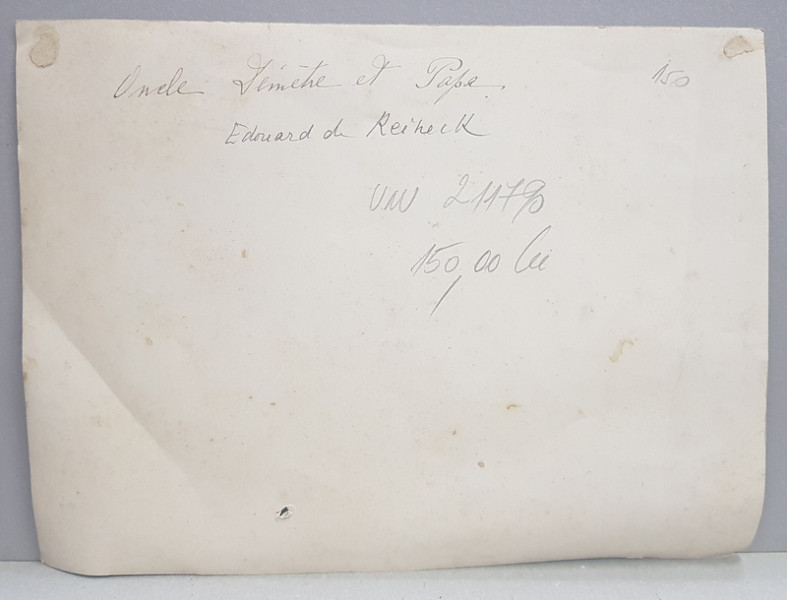 Oncle Démètre et Papa. 150
Edouard de Reineck
UW 21179
150,00 lei